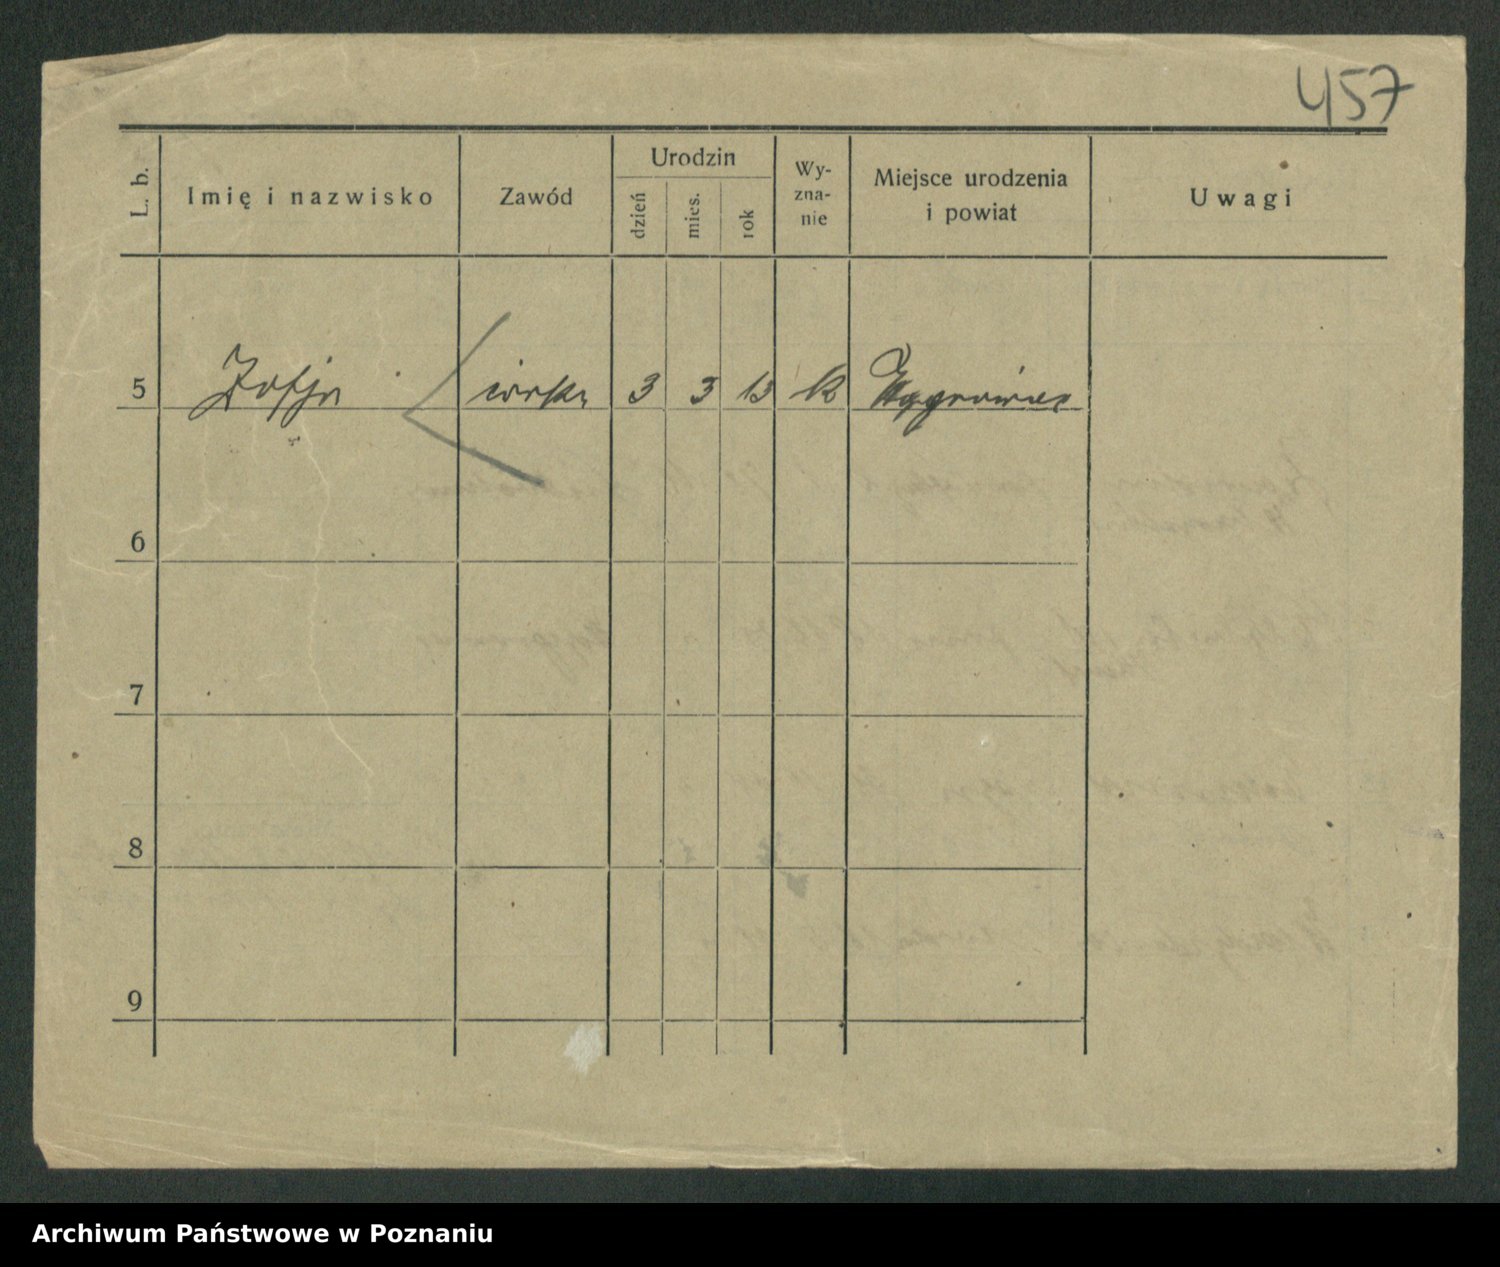 457
L. b.
Imię i nazwisko
Zawód
Urodzin
dzień
mies.
rok
Wy-
zna-
nie
Miejsce urodzenia
i powiat
Uwagi
5 Zofja córka 3 3 13 k Wągrowiec
6
7
8
9
Archiwum Państwowe w Poznaniu